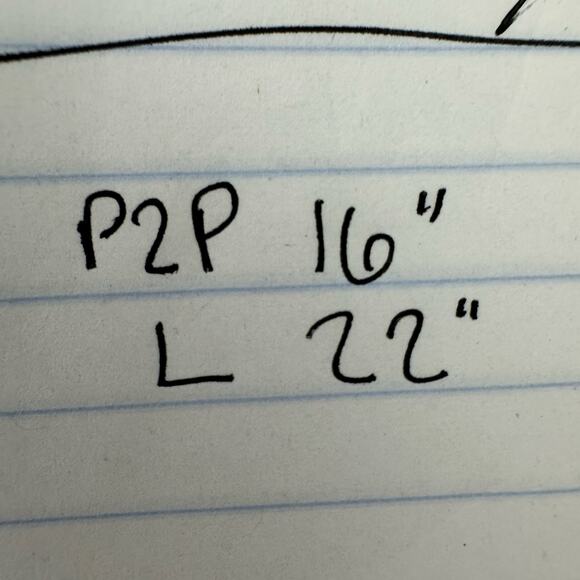 P2P 16"
L 22"